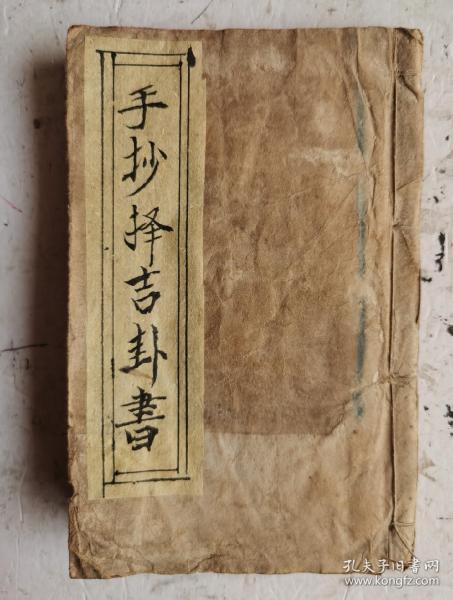 手抄择吉卦書
孔夫子旧书网
www.kongfz.com